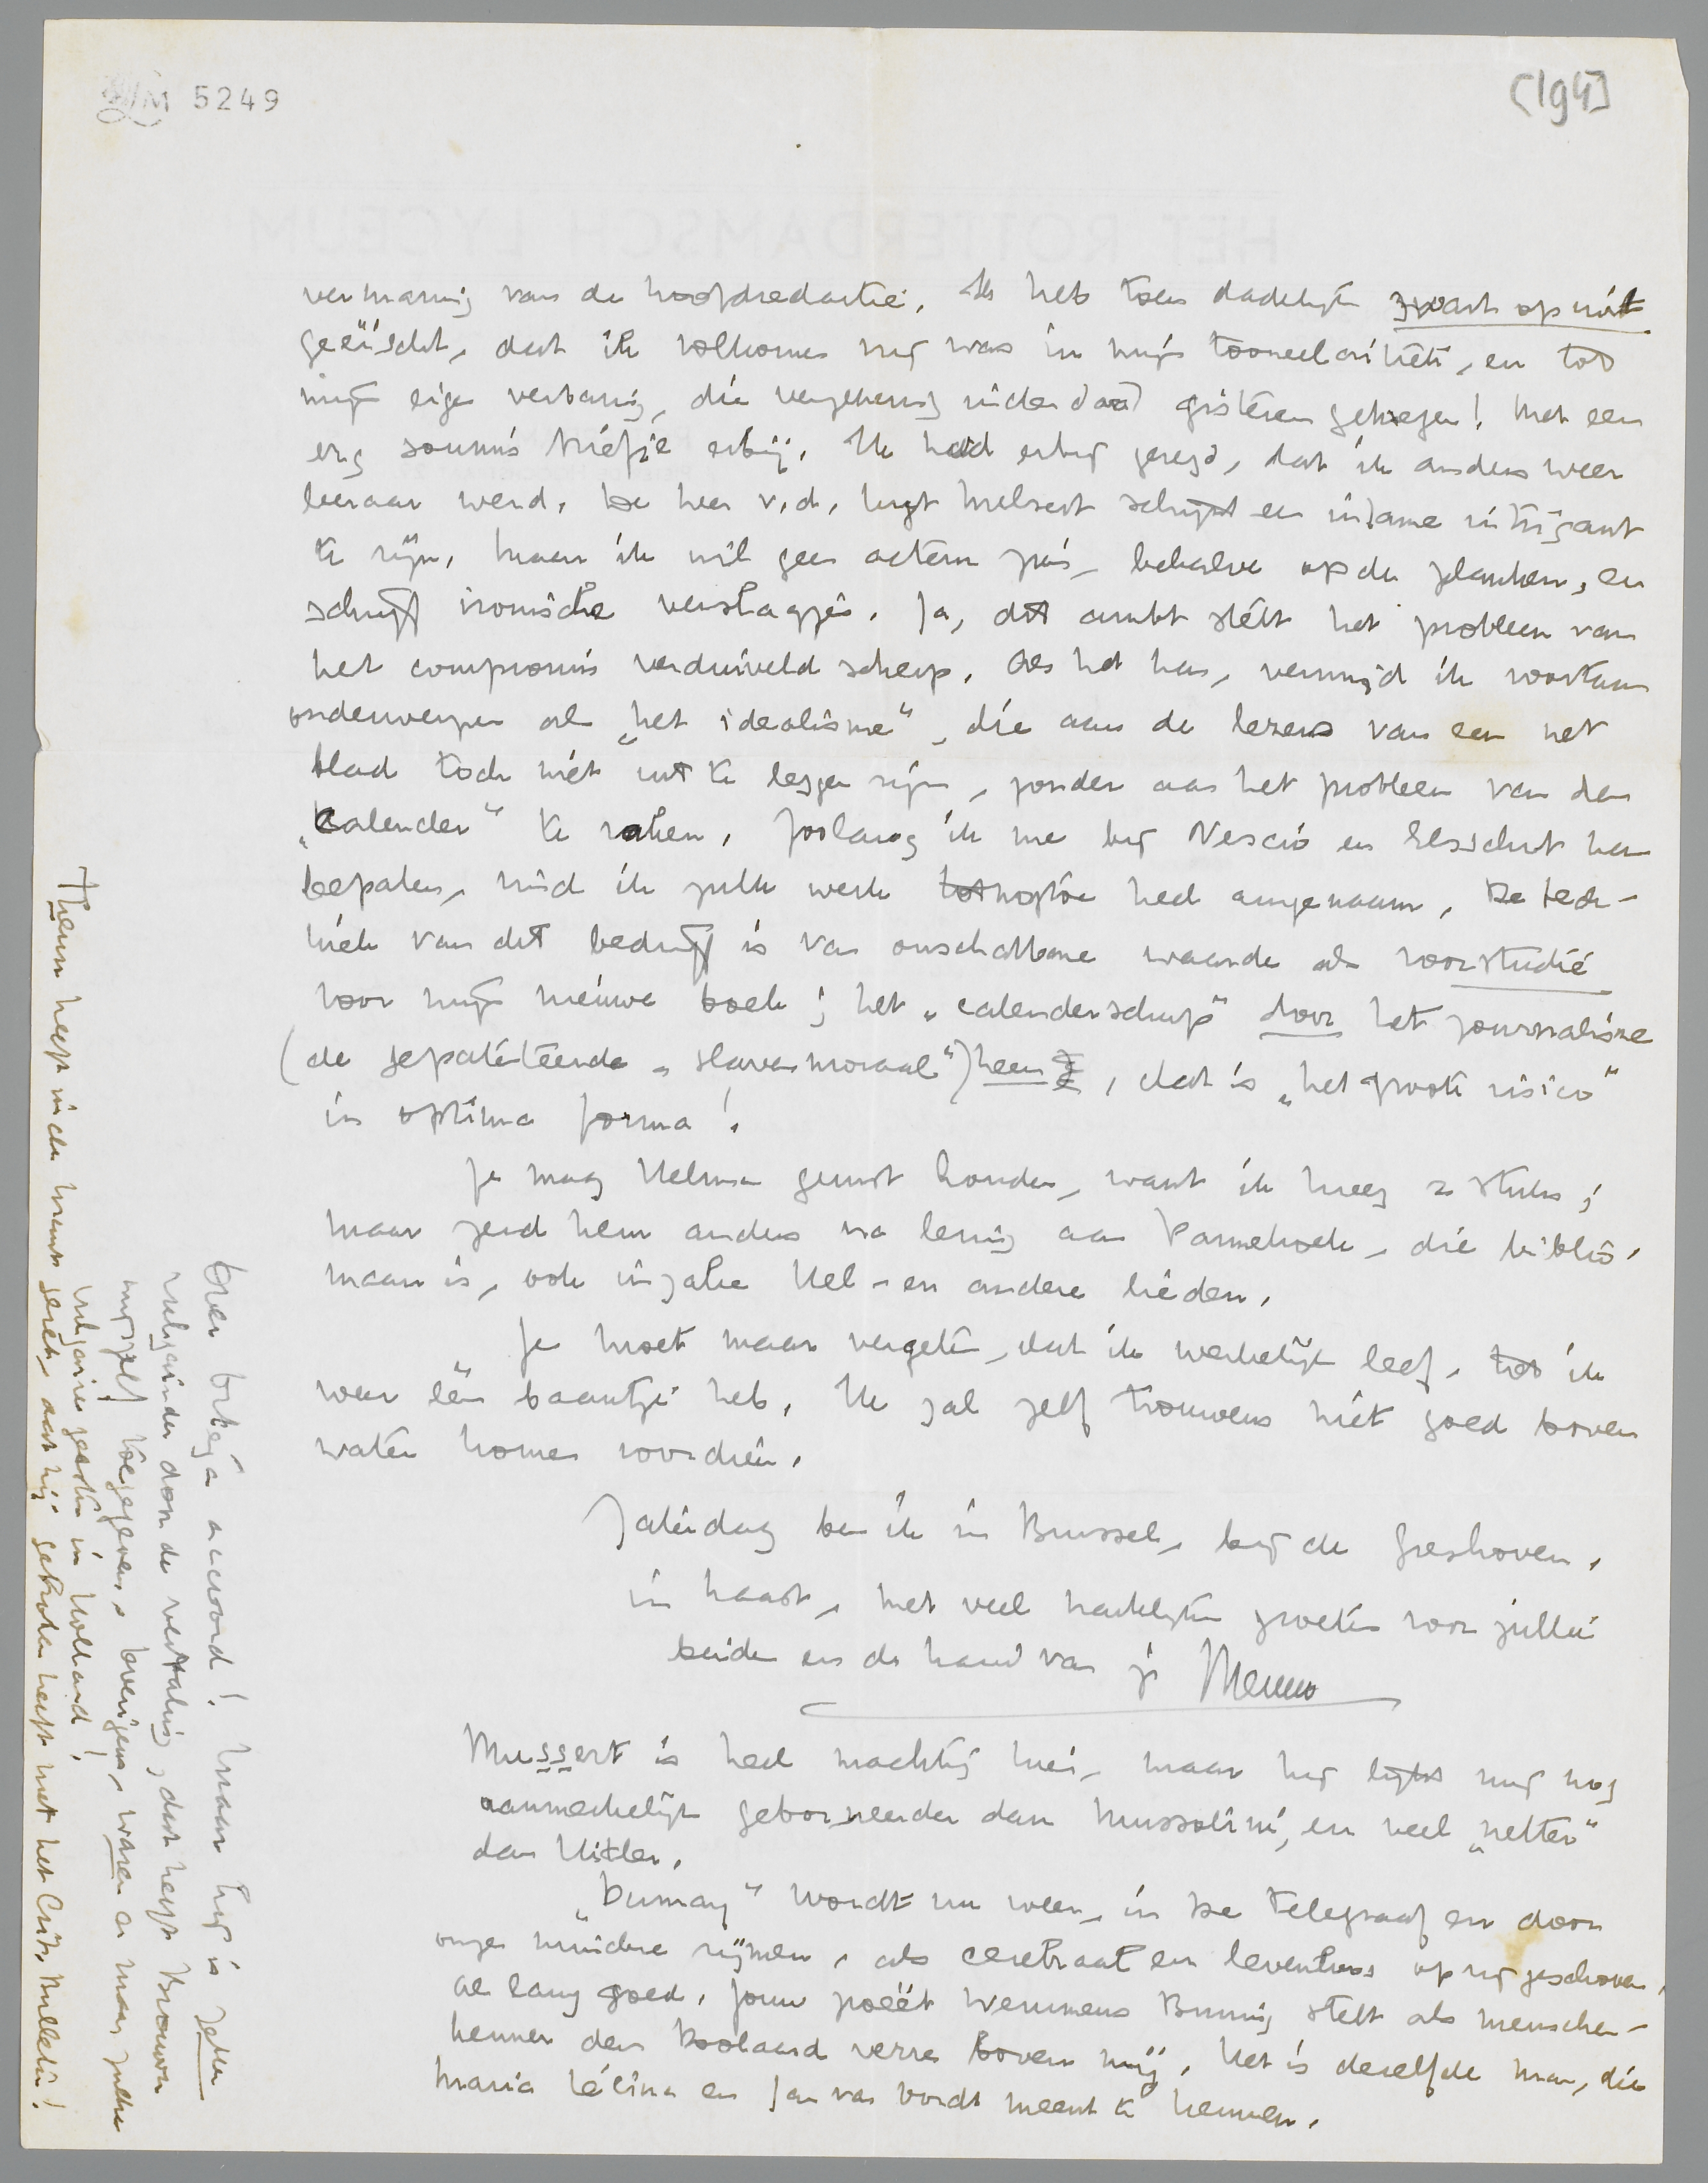 LM 5249
[194]
HET ROTTERDAMSCH LYCEUM
vermaning van de hoofdredactie. Ik heb toen dadelijk zwart op wit
geëischt, dat ik volkomen vrij was in mijn tooneelcritiek, en tot
mijn eigen verbazing, die vergunning inderdaad gisteren gekregen! Met een
erg soumis briefje erbij. Ik had erbij gezegd, dat ik anders weer
leeraar werd. De heer v.d. Lugt Melsert schijnt een infame intrigant
te zijn. Maar ik wil geen acteur zijn, behalve op de planken, en
schrijf ironische verslagjes. Ja, dit ambt stélt het probleem van
het compromis verduiveld scherp. Als het kan, vermijd ik voortaan
onderwerpen als „het idealisme", die aan de lezers van een net
blad toch niet uit te leggen zijn, zonder aan het probleem van den
„Calender" te raken. Zoolang ik me bij Nescio en Elsschot kan
bepalen, vind ik zulk werk tot nogtoe heel aangenaam. De tech-
niek van dit bedrijf is van onschatbare waarde als voorstudie
voor mijn nieuwe boek; het „calenderschap" door het journalisme
(de gepatenteerde „slavenmoraal") heen, dat is „het groote risico"
in optima forma!
Je mag Helman gerust houden, want ik kreeg 2 stuks;
maar zend hem anders na lezing aan Pannekoek, die biblio-
maan is, ook inzake Hel- en andere lieden.
Je moet maar vergeten, dat ik werkelijk leef, tot ik
weer één baantje heb. Ik zal zelf trouwens niet goed boven
water komen voordien.
Zaterdag ben ik in Brussel, bij de Greshoven.
In haast, met veel hartelijke groeten voor jullie
beiden en de hand van je Menno
Mussert is heel machtig hier, maar hij lijkt mij nog
aanmerkelijk geborneerder dan Mussolini, en veel „netter"
dan Hitler.
„Dumay" wordt nu weer, in De Telegraaf en door
onze mindere rijmers, als cerebraal en levenloos op zij geschoven.
Al lang goed. Jouw poëet Werumeus Buning stelt als menschen-
kenner den Doolaard verre boven mij. Het is dezelfde man, die
Maria Lécina en Jan van Oordt meent te kennen.
Over Ortega accoord! Maar hij is zelfs
vulgairder door de vertaling, dat heeft Brouwer
mijzelf toegegeven. Overigens, waren er maar zulke
vulgaire geesten in Holland!
Thelen heeft in de krant gezet, dat hij gebroken heeft met het Crit. Bulletin!